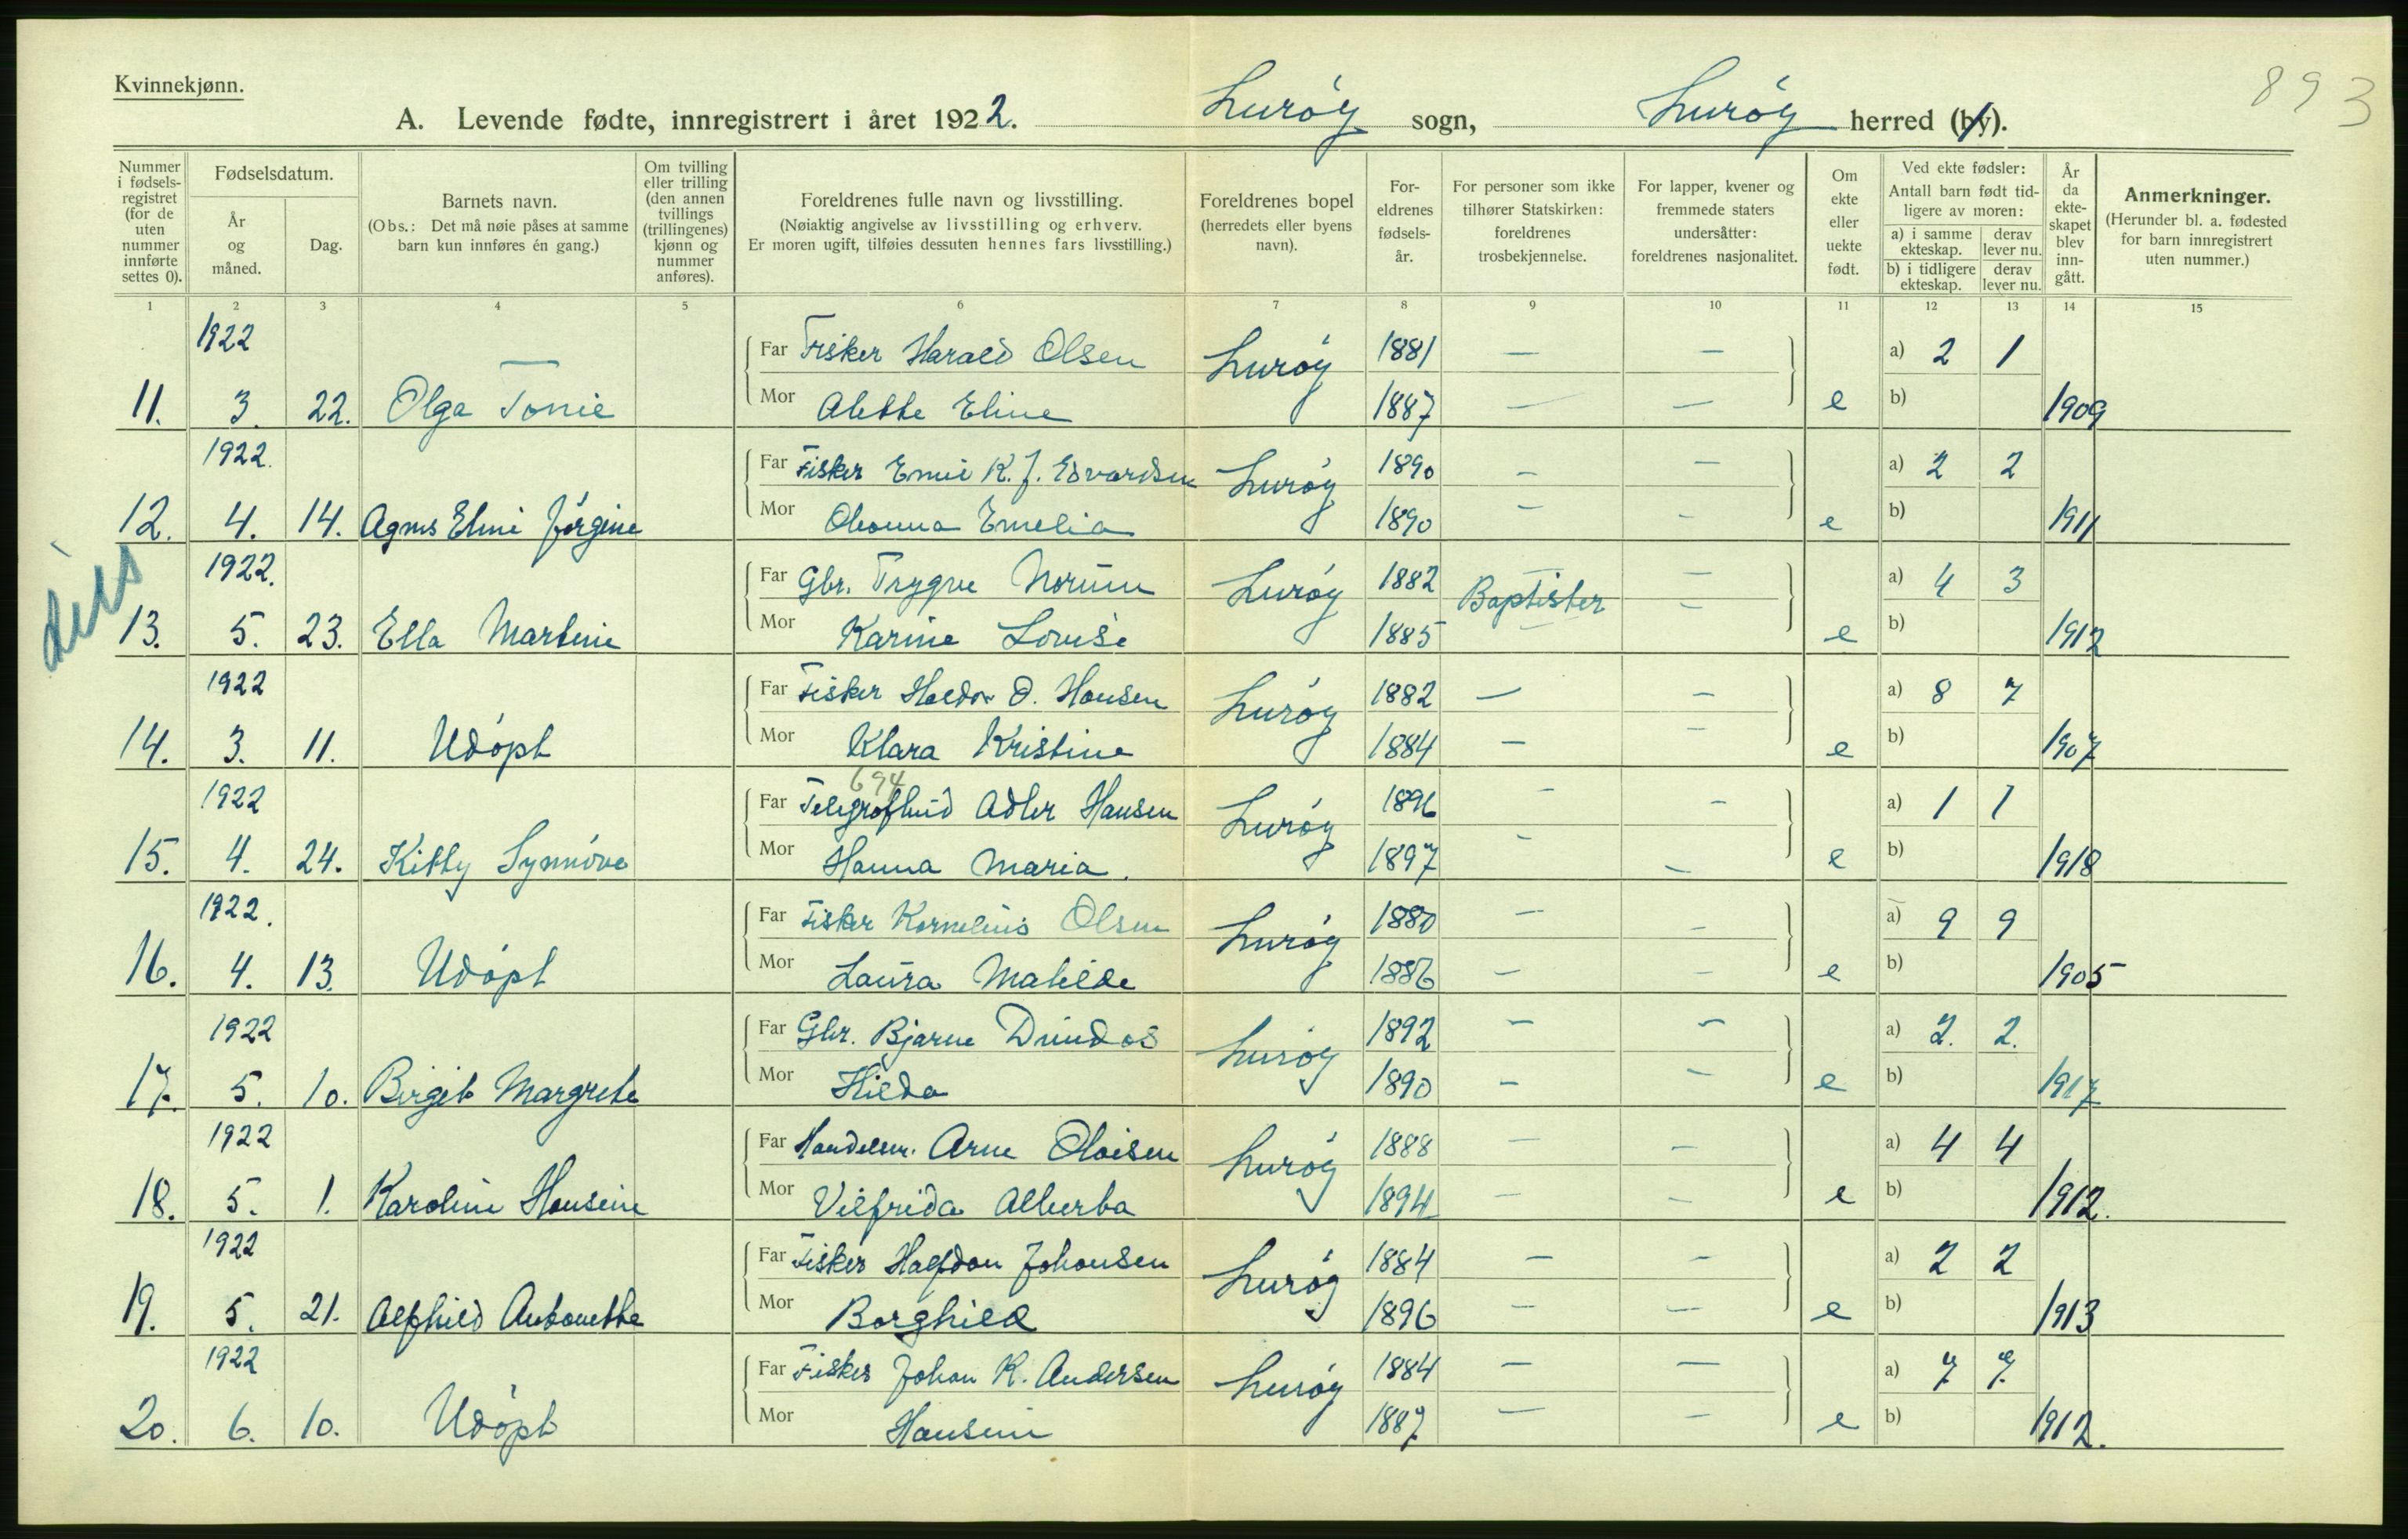 Kvinnekjønn.
893
A. Levende fødte, innregistrert i året 1922. Lurøy sogn, Lurøy herred (by).
Nummer i fødsels-registret (for de uten nummer innførte settes 0).
Fødselsdatum.
År og måned.
Dag.
Barnets navn.
(Obs.: Det må nøie påses at samme barn kun innføres én gang.)
Om tvilling eller trilling (den annen tvillings (trillingenes) kjønn og nummer anføres).
Foreldrenes fulle navn og livsstilling.
(Nøiaktig angivelse av livsstilling og erhverv.
Er moren ugift, tilføies dessuten hennes fars livsstilling.)
Foreldrenes bopel
(herredets eller byens navn).
For-eldrenes fødsels-år.
For personer som ikke tilhører Statskirken: foreldrenes trosbekjennelse.
For lapper, kvener og fremmede staters undersåtter: foreldrenes nasjonalitet.
Om ekte eller uekte født.
Ved ekte fødsler:
Antall barn født tid-ligere av moren:
a) i samme ekteskap. derav lever nu.
b) i tidligere ekteskap. derav lever nu.
År da ekte-skapet blev inn-gått.
Anmerkninger.
(Herunder bl. a. fødested for barn innregistrert uten nummer.)
1 2 3 4 5 6 7 8 9 10 11 12 13 14 15
1922 Far Fisker Harald Olsen Lurøy 1881 — — a) 2 1
11. 3. 22. Olga Tonie Mor Alette Eline 1887 — — e b) 1909
1922. Far Fisker Emil K. J. Edvardsen Lurøy 1890 — — a) 2 2
12. 4. 14. Agnes Elini Jørgine Mor Oleanna Emelia 1890 — — e b) 1911
1922. Far Gbr. Trygve Norum Lurøy 1882 Baptister — a) 4 3
13. 5. 23. Ella Martine Mor Karine Lovise 1885 — e b) 1912
1922 Far Fisker Haldor O. Hansen Lurøy 1882 — — a) 8 7
14. 3. 11. Udøpt Mor Klara Kristine 1884 — — e b) 1907
694
1922 Far Telegrafbud Adler Hansen Lurøy 1896 — — a) 1 1
15. 4. 24. Kitty Synnøve Mor Hanna Maria. 1897 — — e b) 1918
1922. Far Fisker Kornelius Olsen Lurøy 1880 — — a) 9 9
16. 4. 13. Udøpt Mor Laura Matilde 1886 — — e b) 1905
1922 Far Gbr. Bjarne Dundas Lurøy 1892 — — a) 2. 2.
17. 5. 10. Birgit Margrete Mor Hilda 1890 — — e b) 1917
1922 Far Handelsm. Arne Olaisen Lurøy 1888 — — a) 4 4
18. 5. 1. Karoline Hansine Mor Vilfrida Alberta 1894 — — e b) 1912.
1922 Far Fisker Halfdan Johansen Lurøy 1884 — — a) 2 2
19. 5. 21. Alfhild Antonette Mor Borghild 1896 — — e b) 1913
1922 Far Fisker Johan K. Andersen Lurøy 1884 — — a) 7 7.
20. 6. 10. Udøpt Mor Hansine 1887 — — e b) 1912.